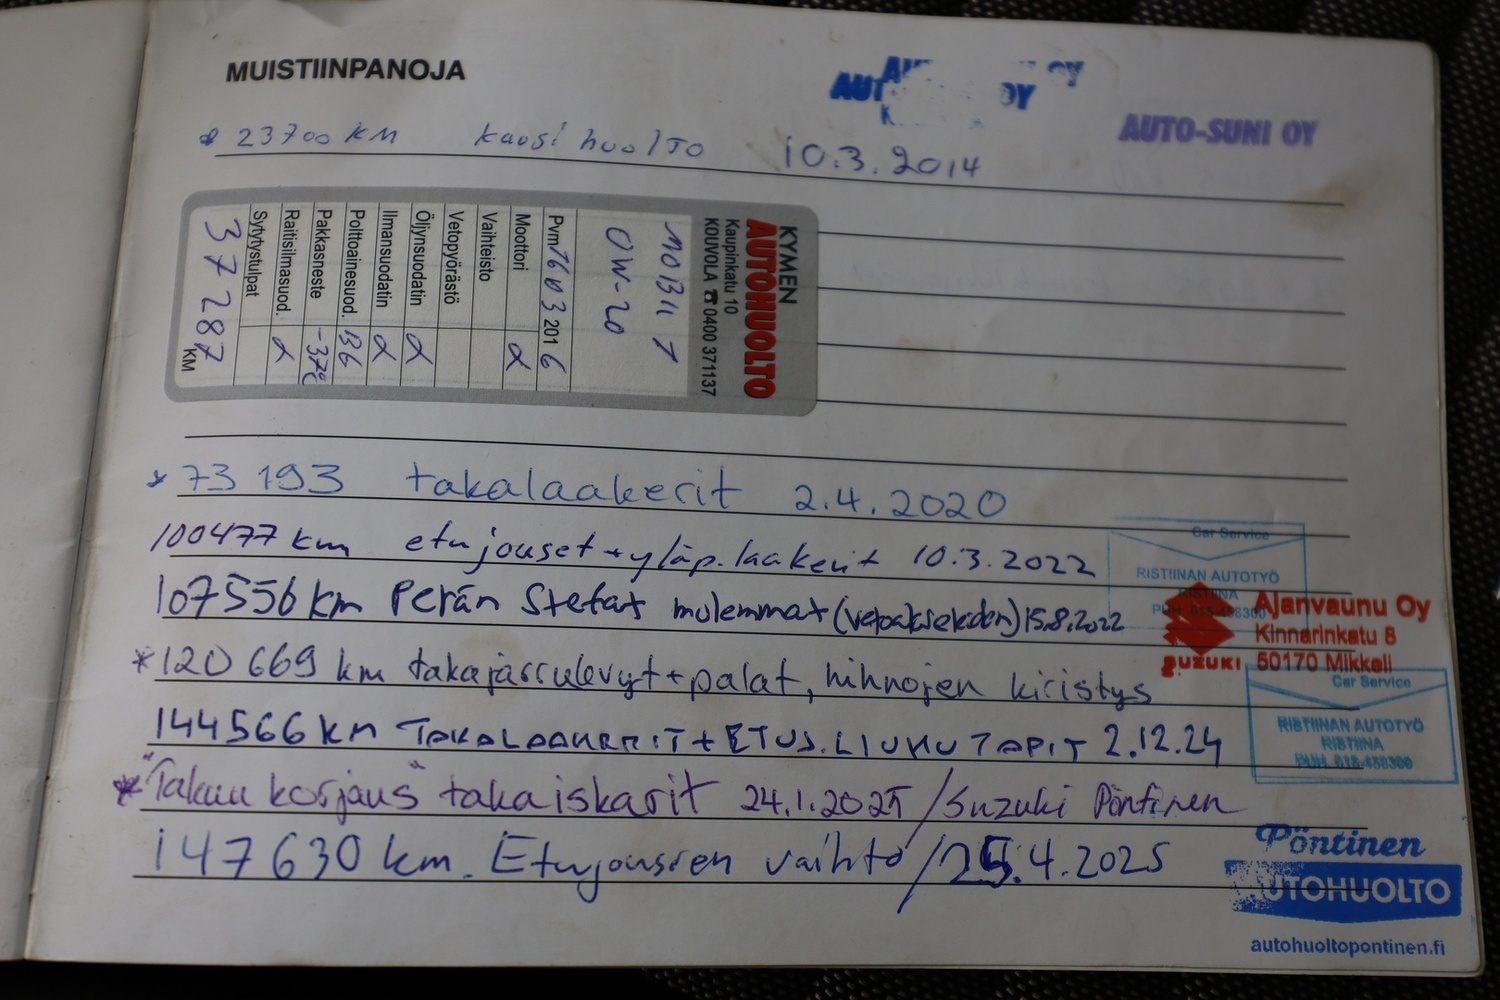 MUISTIINPANOJA
AUTO-SUNI OY
* 23700 KM kausihuolto 10.3.2014
KYMEN
AUTOHUOLTO
Kaupinkatu 10
KOUVOLA ☎ 0400 371137
MOBIL 1
0W-20
Pvm 16 03 2016
Moottori α
Vaihteisto
Vetopyörästö
Öljynsuodatin α
Ilmansuodatin α
Polttoainesuod. B6
Pakkasneste -37°C
Raitisilmasuod. α
Sytytystulpat
37287 KM
* 73 193 takalaakerit 2.4.2020
100477 km etujouset + yläp. laakerit 10.3.2022
107556 km Perän Stefat molemmat (vetoakseleiden) 15.8.2022
* 120 669 km takajarrulevyt + palat, hihnojen kiristys
144566 km TAKALAAKERIT + ETUS. LIUKUTAPIT 2.12.24
* "Takuu korjaus" takaiskarit 24.1.2025 / Suzuki Pöntinen
147630 km. Etujousien vaihto / 25.4.2025
Car Service
RISTIINAN AUTOTYÖ
RISTIINA
Ajanvaunu Oy
Kinnarinkatu 8
SUZUKI 50170 Mikkeli
Car Service
RISTIINAN AUTOTYÖ
RISTIINA
Pöntinen
AUTOHUOLTO
autohuoltopontinen.fi